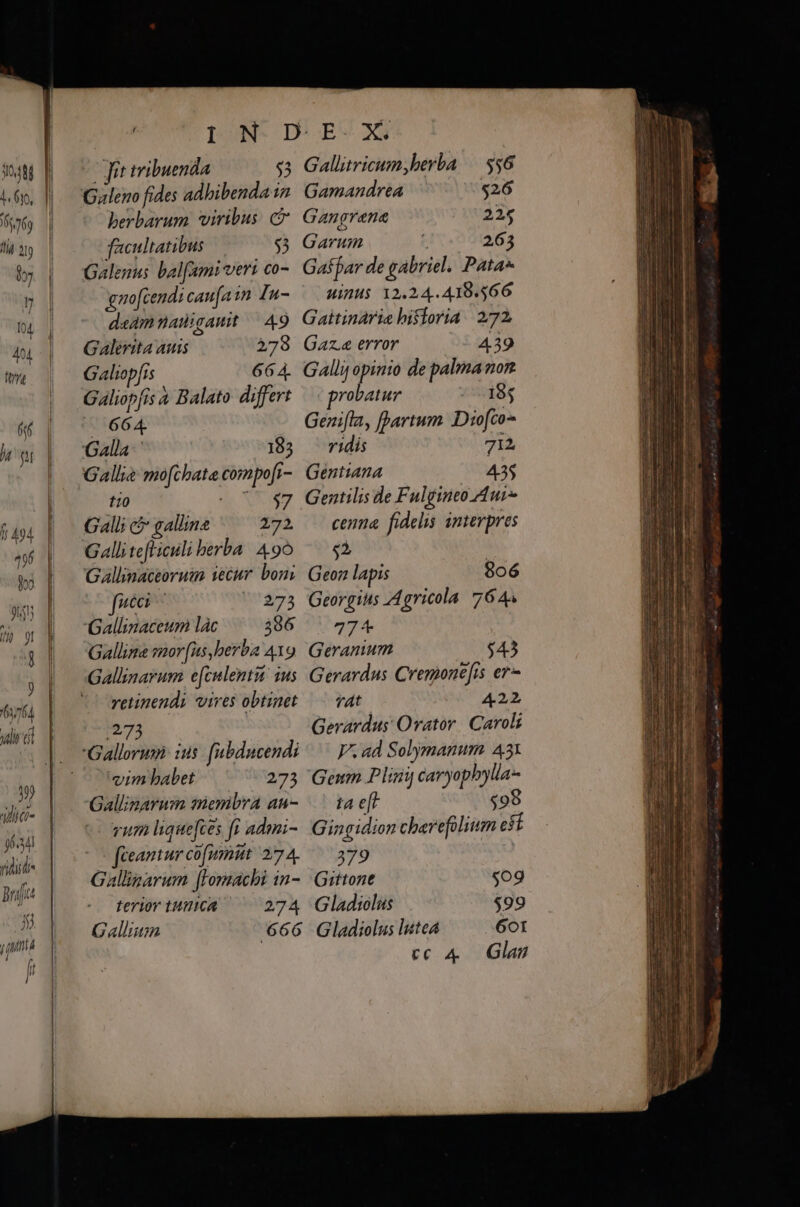 I N D E X.
ſit tribuenda 53
Galeno fides adhibenda in
herbarum viribus &
facultatibus 53
Galenus balſami veri co-
gnoſcendi cauſa in Iu-
dæam nauigauit 49
Galerita auis 278
Galiopſis 664
Galiopſis à Balato differt
664
Galla 183
Galliæ moſchatæ compoſi-
tio 57
Galli & gallinæ 272
Galli teſticuli herba 490
Gallinaceorum iecur boni
ſucci 273
Gallinaceum lac 386
Gallinæ morſus, herba 419
Gallinarum eſculentũ ius
retinendi vires obtinet
273
Gallorum ius ſubducendi
vim habet 273
Gallinarum membra au-
rum liqueſcẽs ſi admi-
ſceantur cõſumũt 274
Gallinarum ſtomachi in-
terior tunica 274
Gallium 666
Gallitricum, herba 556
Gamandrea 526
Gangrenæ 225
Garum 263
Gaſpar de gabriel. Pata-
uinus 12.24.418.566
Gattinariæ hiſtoria 272
Gazæ error 439
Gallij opinio de palma non
probatur 185
Geniſta, ſpartum Dioſco-
ridis 712
Gentiana 435
Gentilis de Fulgineo Aui-
cennæ fidelis interpres
52
Geon lapis 806
Georgius Agricola 764.
774
Geranium 543
Gerardus Cremonẽſis er-
rat 422
Gerardus Orator Caroli
V. ad Solymanum 431
Geum Plinij caryophylla-
ta eſt 598
Gingidion cherefolium eſt
379
Gittone 509
Gladiolus 599
Gladiolus lutea 601
cc 4 Glan